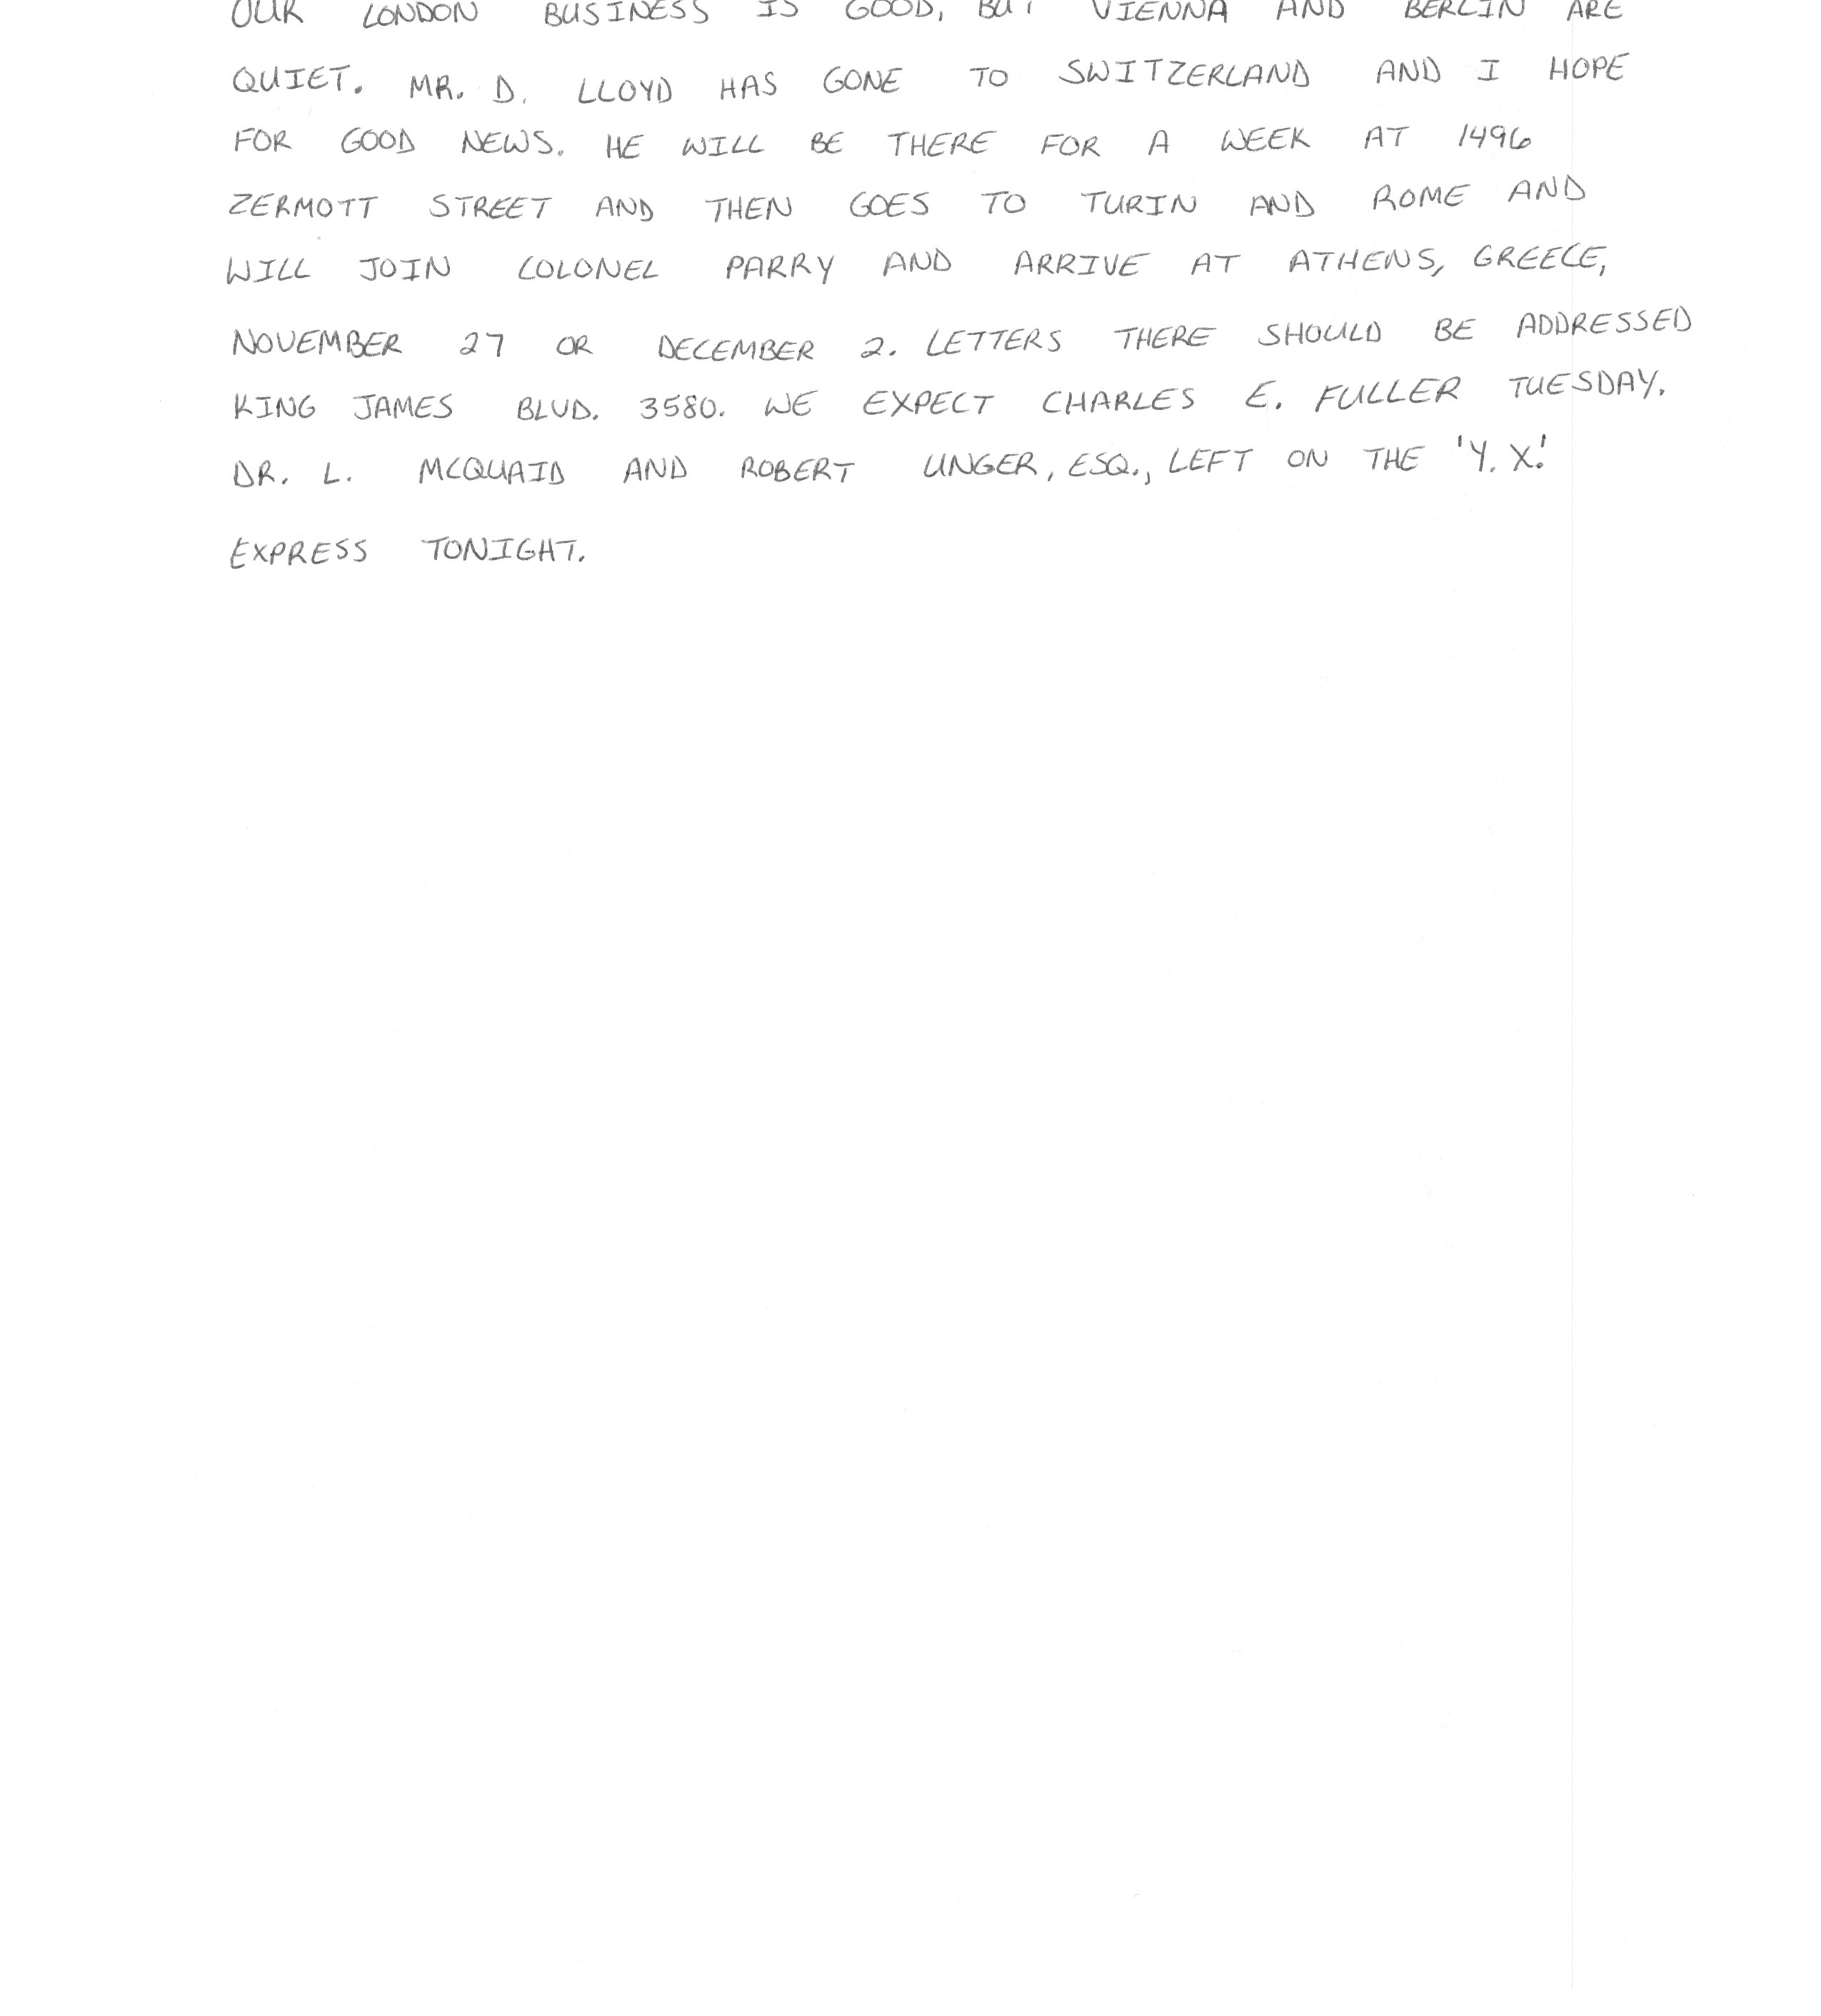 OUR LONDON BUSINESS IS GOOD, BUT VIENNA AND BERLIN ARE
QUIET. MR. D. LLOYD HAS GONE TO SWITZERLAND AND I HOPE
FOR GOOD NEWS. HE WILL BE THERE FOR A WEEK AT 1496
ZERMOTT STREET AND THEN GOES TO TURIN AND ROME AND
WILL JOIN COLONEL PARRY AND ARRIVE AT ATHENS, GREECE,
NOVEMBER 27 OR DECEMBER 2. LETTERS THERE SHOULD BE ADDRESSED
KING JAMES BLVD. 3580. WE EXPECT CHARLES E. FULLER TUESDAY.
DR. L. MCQUAID AND ROBERT UNGER, ESQ., LEFT ON THE 'Y. X.'
EXPRESS TONIGHT.